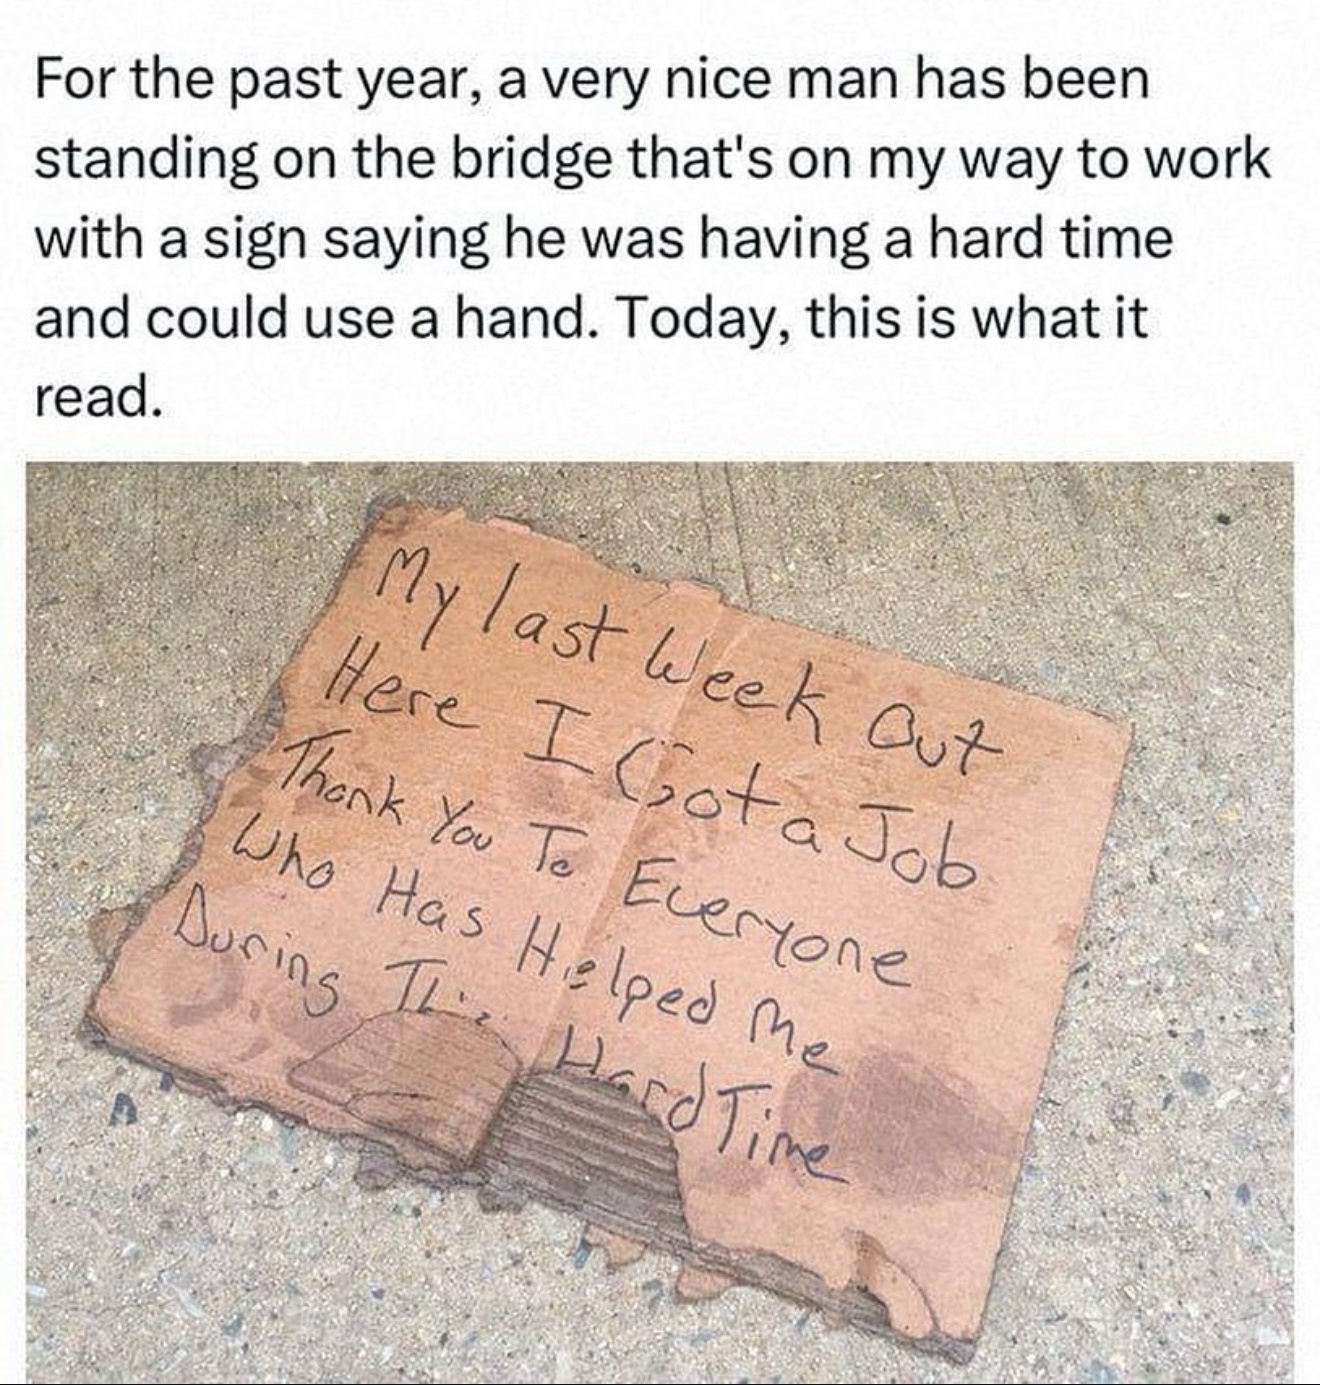 For the past year, a very nice man has been
standing on the bridge that's on my way to work
with a sign saying he was having a hard time
and could use a hand. Today, this is what it
read.
My last Week Out
Here I Got a Job
Thank You To Everyone
Who Has Helped Me
During This Hard Time